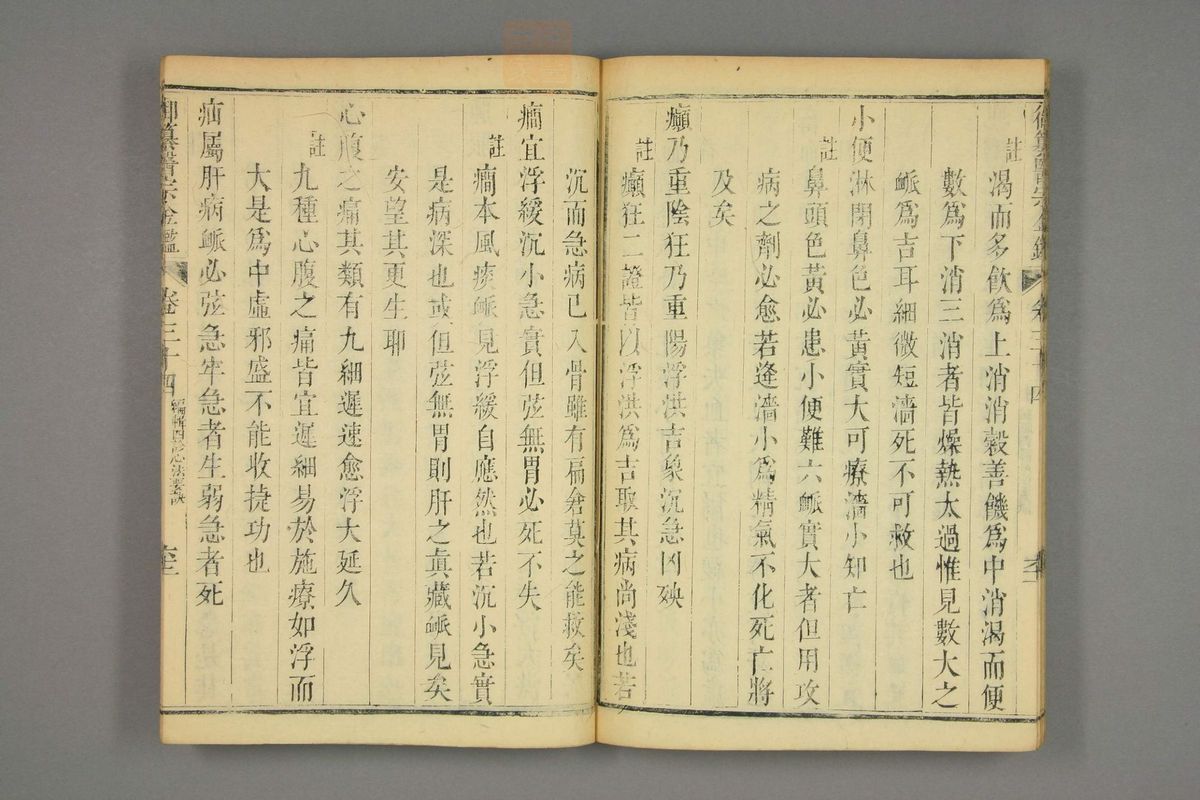 註
渴而多飲爲上消消穀善饑爲中消渴而便
數爲下消三消者皆燥熱太過惟見數大之
䘑爲吉耳細微短濇死不可救也
小便淋閉鼻色必黃實大可療濇小知亡
註
鼻頭色黃必患小便難六䘑實大者但用攻
病之劑必愈若逢濇小爲精氣不化死亡將
及矣
癲乃重陰狂乃重陽浮洪吉象沉急凶殃
註
癲狂二證皆以浮洪爲吉取其病尚淺也若
沉而急病已入骨雖有扁倉莫之能救矣
癎宜浮緩沉小急實但弦無胃必死不失
註
癎本風痰䘑見浮緩自應然也若沉小急實
是病深也或但弦無胃則肝之眞藏䘑見矣
安望其更生耶
心腹之痛其類有九細遲速愈浮大延久
註
九種心腹之痛皆宜遲細易於施療如浮而
大是爲中虛邪盛不能收捷功也
疝屬肝病䘑必弦急牢急者生弱急者死
御纂醫宗金鑑
卷三十四
編輯四診心法要訣